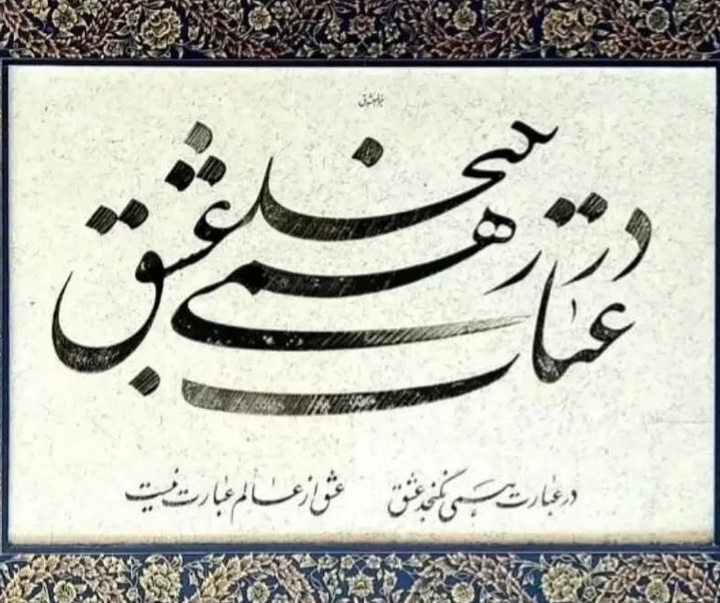 در عبارت همی نگنجد عشق
در عبارت همی نگنجد عشق عشق از عالم عبارت نیست